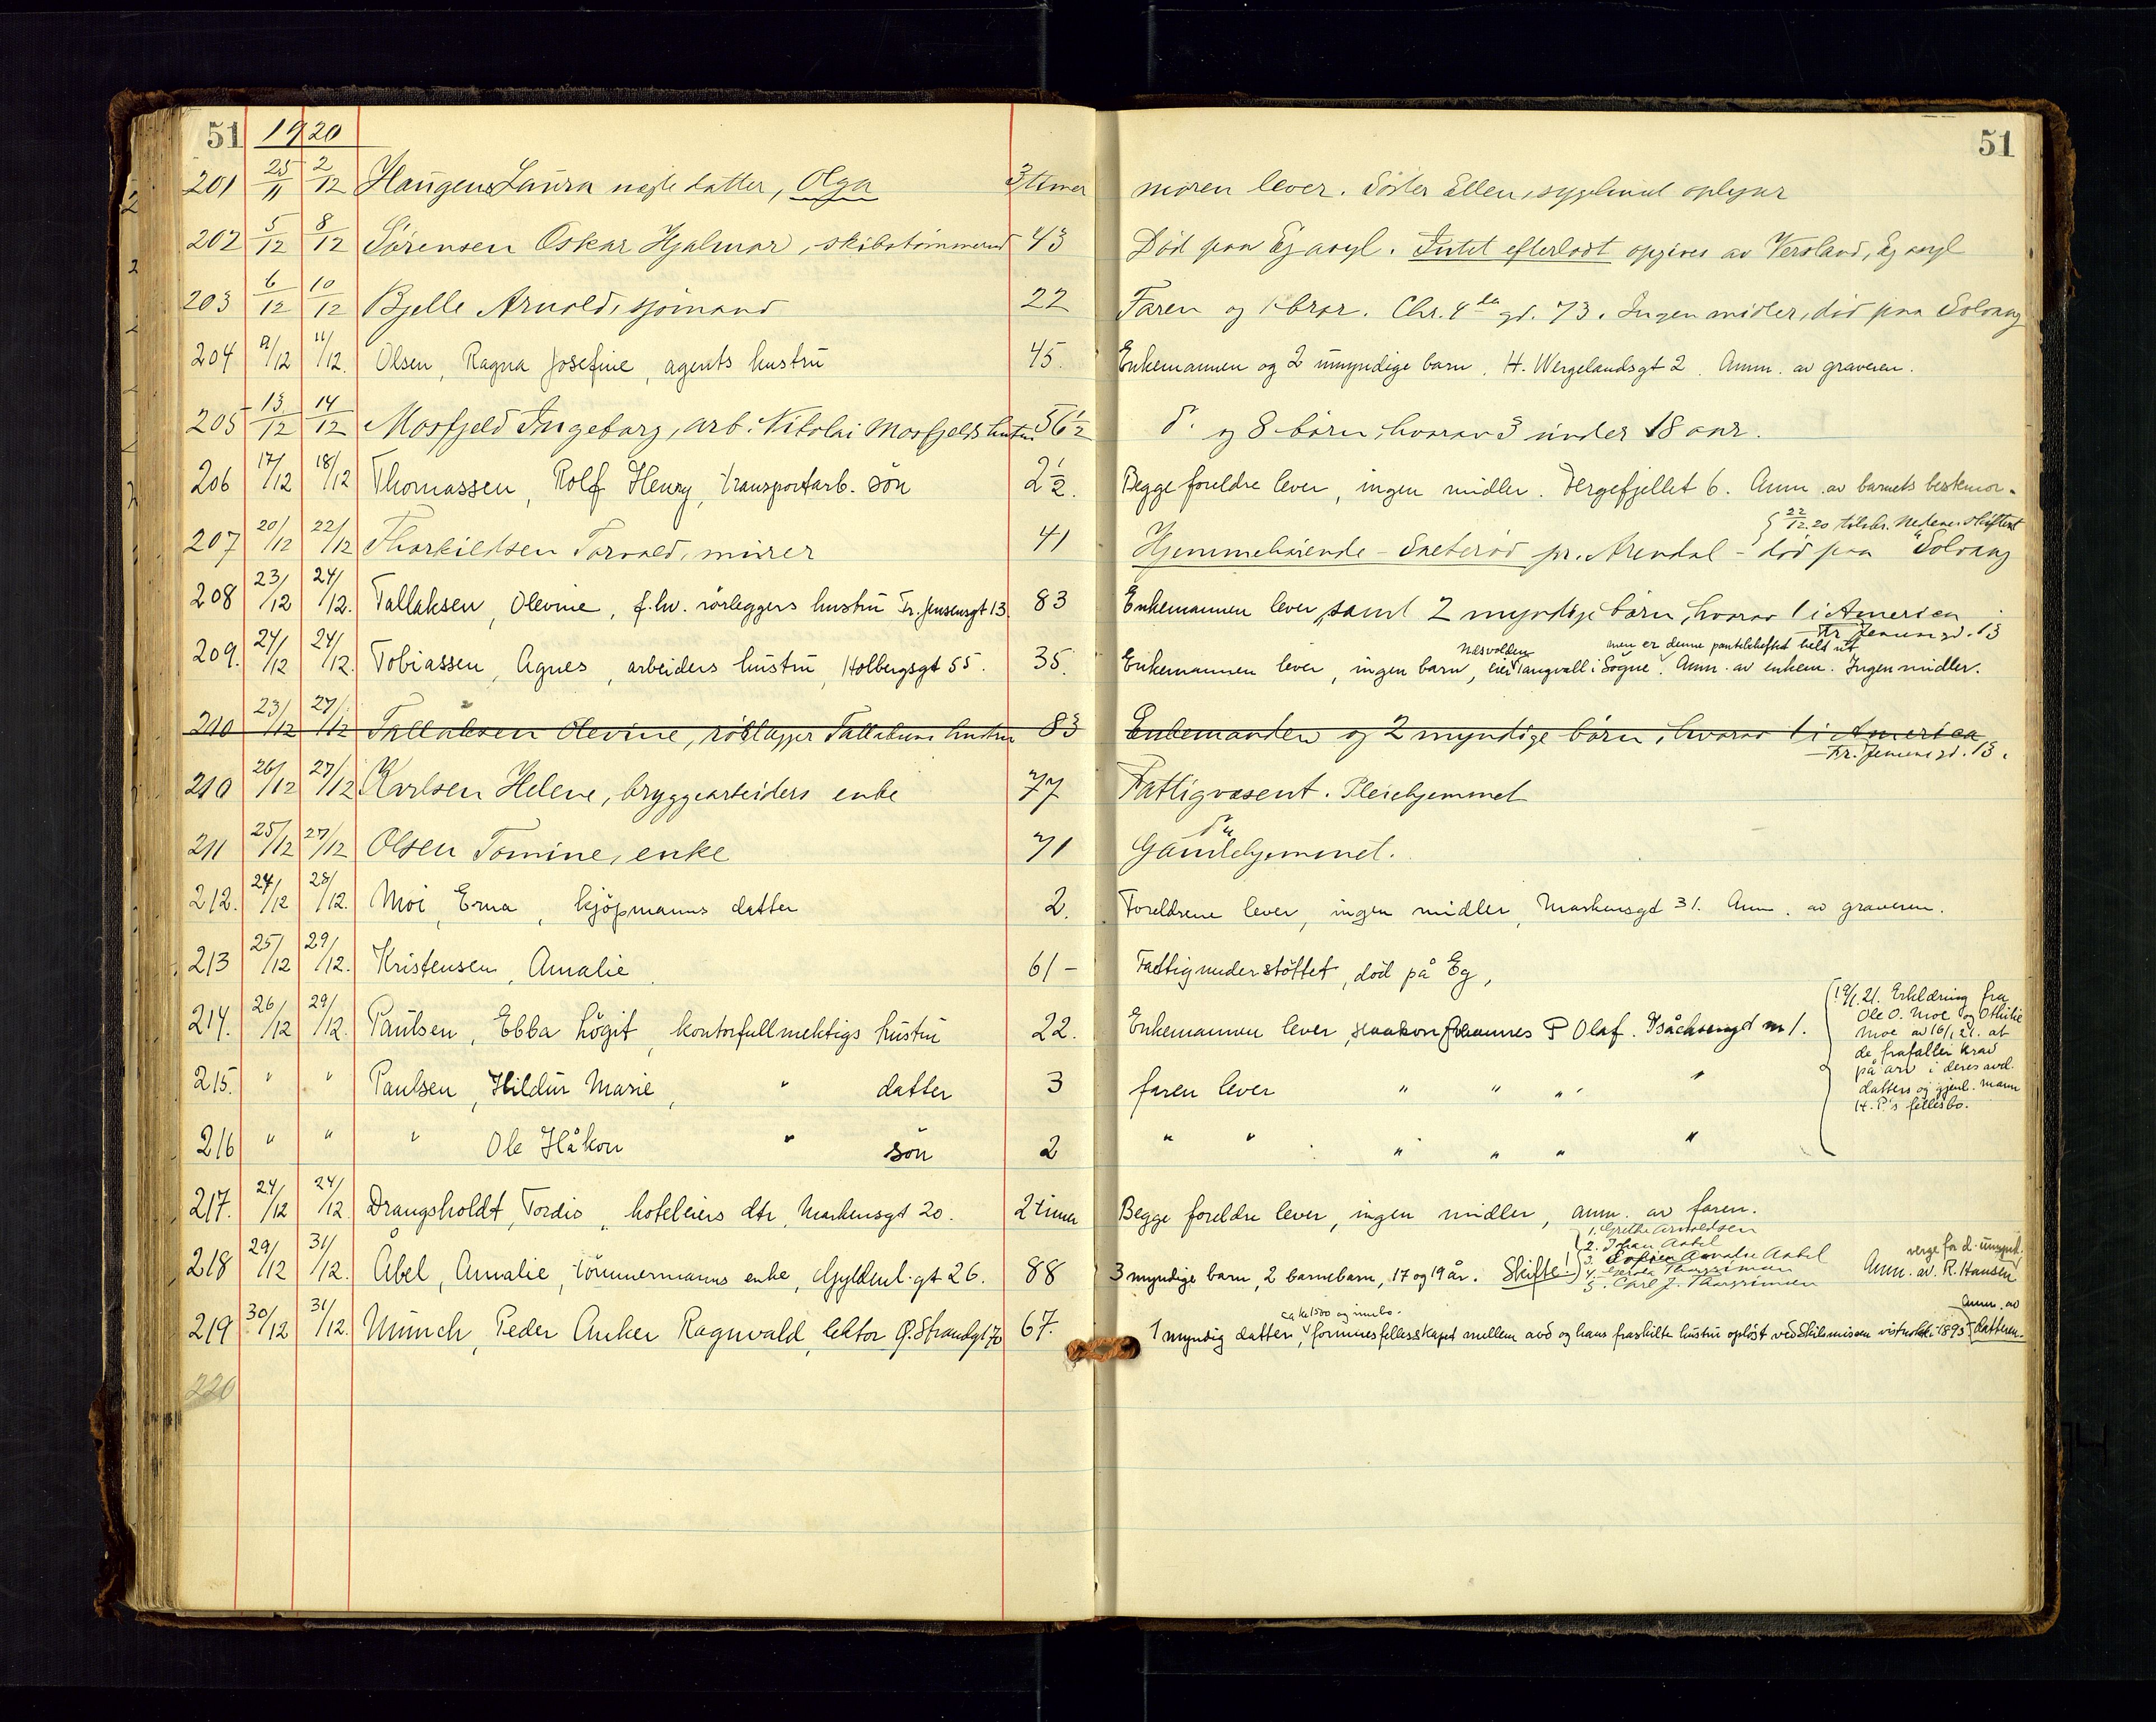 51 1920 51
201 25/11 2/12 Haugens Laura uegte datter, Olga 3 timer moren lever. Söster Ellen, oplyser
202 5/12 8/12 Sörensen Oskar Hjalmar, skibstömmermd 43 Död paa Eg asyl. Intet efterladt opgives av Versland, Eg asyl
203 6/12 10/12 Bjelle Arnold, sjömand 22 Faren og 1 bror. Chr. 4de gd. 73. Ingen midler, död paa Solvang
204 9/12 11/12. Olsen, Ragna Josefine, agents hustru 45. Enkemannen og 2 umyndige barn. H. Wergelandsgt 2. Anm. av graveren.
205 13/12 14/12 Mosfjeld Ingeborg, arb. Nikolai Mosfjelds hustru 56 1/2 d. og 8 börn, hvorav 3 under 18 aar.
206 17/12 18/12 Thomassen, Rolf Henry, transportarb. sön 2 1/2. Begge foreldre lever, ingen midler. Vergefjellet 6. Anm av barnets bestemor.
22/12.20 tilskr. Nedenes skifteret
207 20/12 22/12 Thorkildsen Torvald, murer 41 Hjemmehörende - Saeteröd pr. Arendal - död paa Solvang
208 23/12 24/12. Tallaksen, Olevine, f.hv. rörleggers hustru Fr. Jensensgt 13. 83 Enkemannen lever, samt 2 myndige börn, hvorav 1 i America
Fr. Jensens gd. 13
Næsvolden men er denne pantebeheftet helt ut
209. 24/12 24/12. Tobiassen, Agnes, arbeiders hustru, Holbergsgt 55. 35. Enkemannen lever, ingen barn, eier Tangvall i Sögne. Anm. av enkem. Ingen midler.
210 23/12 27/12 Tallaksen Olevine, rörlægger Tallaksens hustru 83 Enkemanden og 2 myndige börn, hvorav 1 i America
Fr. Jensens gd. 13.
210 26/12 27/12 Karlsen Helene, bryggearbeiders enke 77 Fattigvæsent. Pleiehjemmet
211 25/12 27/12 Olsen Tomine, enke 71 Gamlehjemmet.
212. 24/12 28/12. Moi, Erna, kjöpmanns datter 2. Foreldrene lever, ingen midler, Markensgt 31. Anm. av graveren.
213 25/12 29/12. Kristensen, Amalie. 61 - Fattigunderstöttet, död på Eg,
214. 26/12 29/12. Paulsen, Ebba Högit, kontorfullmektigs hustru 22. Enkemannen lever, Haakon Johannes P Olaf. Isåchsengd nr 1.
19/1.21. Erklæring fra
Ole O. Moe og Othilie
Moe av 16/1 21. at
de frafaller krav
på arv i deres avd.
datters og gjenl. mann
H. P.'s fellesbo.
215. " " Paulsen, Hildur Marie, " datter 3 faren lever " " " "
216 " " " Ole Håkon " sön 2 " " " " " "
217. 24/12 24/12. Drangsholdt, Tordis, hoteleiers dtr, Markensgt 20. 2 timer Begge foreldre lever, ingen midler, anm. av faren.
1. Grethe Arnoldsen
2. Johan Aabel
3. Sofien Amalie Aabel
5. Carl J. Thorgrimsen
218 29/12 31/12. Åbel, Amalie, tömmermanns enke, Gyldenl. gt 26. 88 3 myndige barn, 2 barnebarn, 17 og 19 år. Skifte! Anm. av. R. Hansen verge for d. umynd.
ca kr 1500 og innbo.
219 30/12 31/12. Münch, Peder Anker Ragnvald, lektor Ø. Strandgt 70 67. 1 myndig datter, formuesfellesskapet mellem avd og hans fraskilte hustru oplöst ved skilsmissen vistnok i 1895. Anm. av datteren.
220